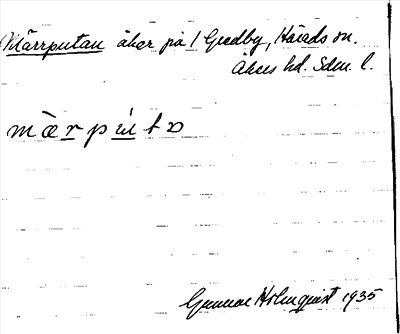 Märrputan åker på 1 Gredby, Härads sn.
Åkers hd. Sdm. l.
mærputa
Gunnar Holmquist 1935